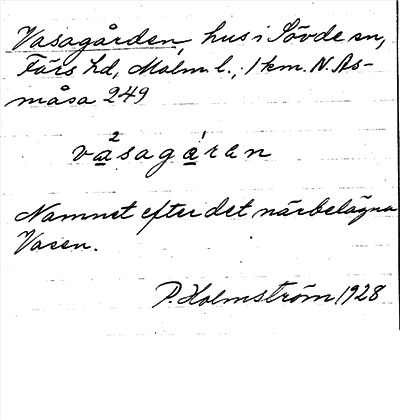 Vasagården, hus i Sövde sn,
Färs hd, Malm. l., 1 km. N. As-
måsa 249
va²sagá¹rɘn
Namnet efter det närbelägna
Vasen.
P. Holmström 1928